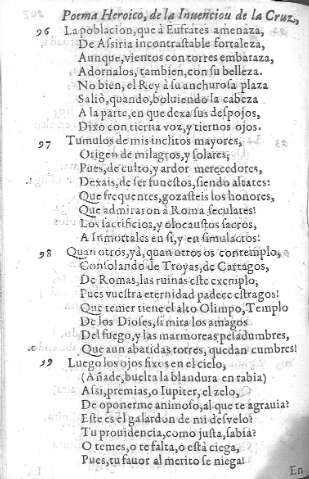 Poema Heroico, de la Inuenciou de la Cruz,
96 La poblacion, que à Eufrates amenaza,
De Assiria incontrastable fortaleza,
Aunque, vientos con torres embaraza,
Adornalos, tambien, con su belleza.
No bien, el Rey à su anchurosa plaza
Saliò, quando, boluiendo la cabeza
A la parte, en que dexa sus despojos,
Dixo con tierna voz, y tiernos ojos.
97 Tumulos de mis inclitos mayores,
Origen de milagros, y solares,
Pues, de culto, y ardor merecedores,
Dexais, de ser funestos, siendo altares:
Que frequentes, gozasteis los honores,
Que admiraron à Roma seculares!
Los sacrificios, y olocaustos sacros,
A inmortales en si, y en simulacros!
98 Quan otros, yà, quan otros os contemplo,
Consolando de Troyas, de Cartagos,
De Romas, las ruinas este exemplo,
Pues vuestra eternidad padece estragos!
Que temer tiene el alto Olimpo, Templo
De los Dioses, si mira los amagos
Del fuego, y las marmoreas pesadumbres,
Que aun abatidas torres, quedan cumbres!
99 Luego los ojos fixe en el cielo,
(Añade, buelta la blandura en rabia)
Assi, premias, o Iupiter, el zelo,
De oponerme animoso, al que te agrauia?
Este es el galardon de mi desvelo?
Tu prouidencia, como justa, sabia?
O temes, o te falta, o està ciega,
Pues, tu fauor al merito se niega!
En